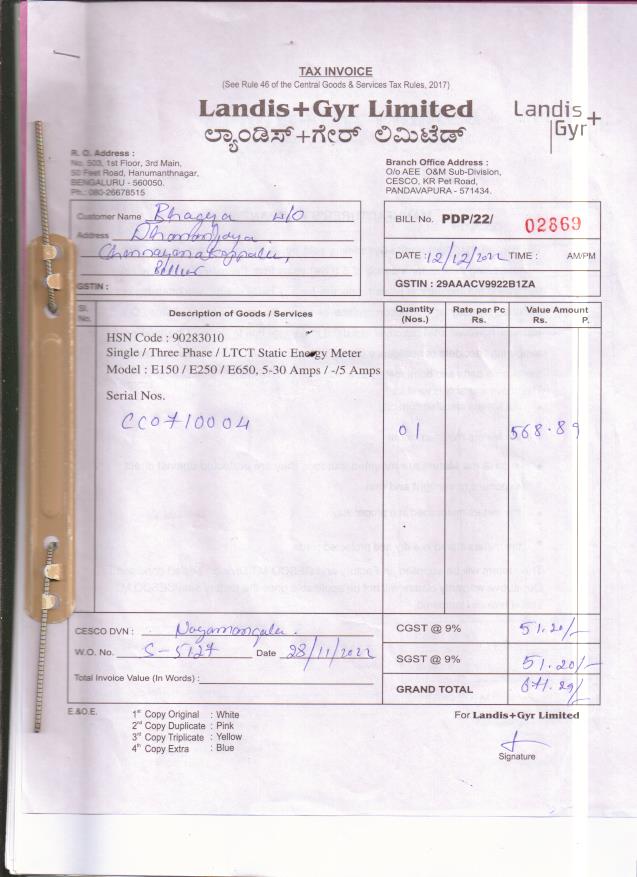 TAX INVOICE
(See Rule 46 of the Central Goods & Services Tax Rules, 2017)
Landis+Gyr Limited
ಲ್ಯಾಂಡಿಸ್+ಗೇರ್ ಲಿಮಿಟೆಡ್
Landis+
Gyr
R. O. Address :
No. 503, 1st Floor, 3rd Main,
50 Feet Road, Hanumanthnagar,
BENGALURU - 560050.
Ph.: 080-26678515
Branch Office Address :
O/o AEE O&M Sub-Division,
CESCO, KR Pet Road,
PANDAVAPURA - 571434.
Customer Name Bhagya W/O
Address Dhananjaya
Chennayanakoppalu,
GSTIN :
BILL No. PDP/22/ 02869
DATE : 12/12/2022 TIME : AM/PM
GSTIN : 29AAACV9922B1ZA
Sl. No. Description of Goods / Services Quantity (Nos.) Rate per Pc Rs. Value Amount Rs. P.
HSN Code : 90283010
Single / Three Phase / LTCT Static Energy Meter
Model : E150 / E250 / E650, 5-30 Amps / -/5 Amps
Serial Nos.
CC0710004 01 568.89
CESCO DVN : Nagamangala.
W.O. No. S-5127 Date 28/11/2022
Total Invoice Value (In Words) :
CGST @ 9% 51.20/-
SGST @ 9% 51.20/-
GRAND TOTAL 671.29/
E.&O.E.
1st Copy Original : White
2nd Copy Duplicate : Pink
3rd Copy Triplicate : Yellow
4th Copy Extra : Blue
For Landis+Gyr Limited
Signature